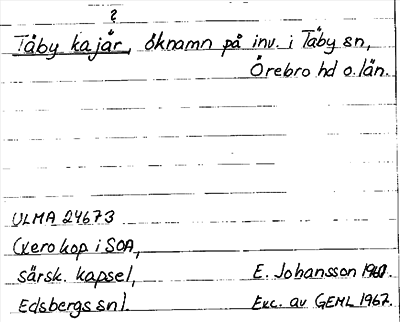 ?
Tåby kajår, öknamn på inv. i Täby sn,
Örebro hd o. län.
ULMA 24673
(xerokop i SOA,
särsk. kapsel, E. Johansson
Edsbergs snl. Exc. av GEML 1967.